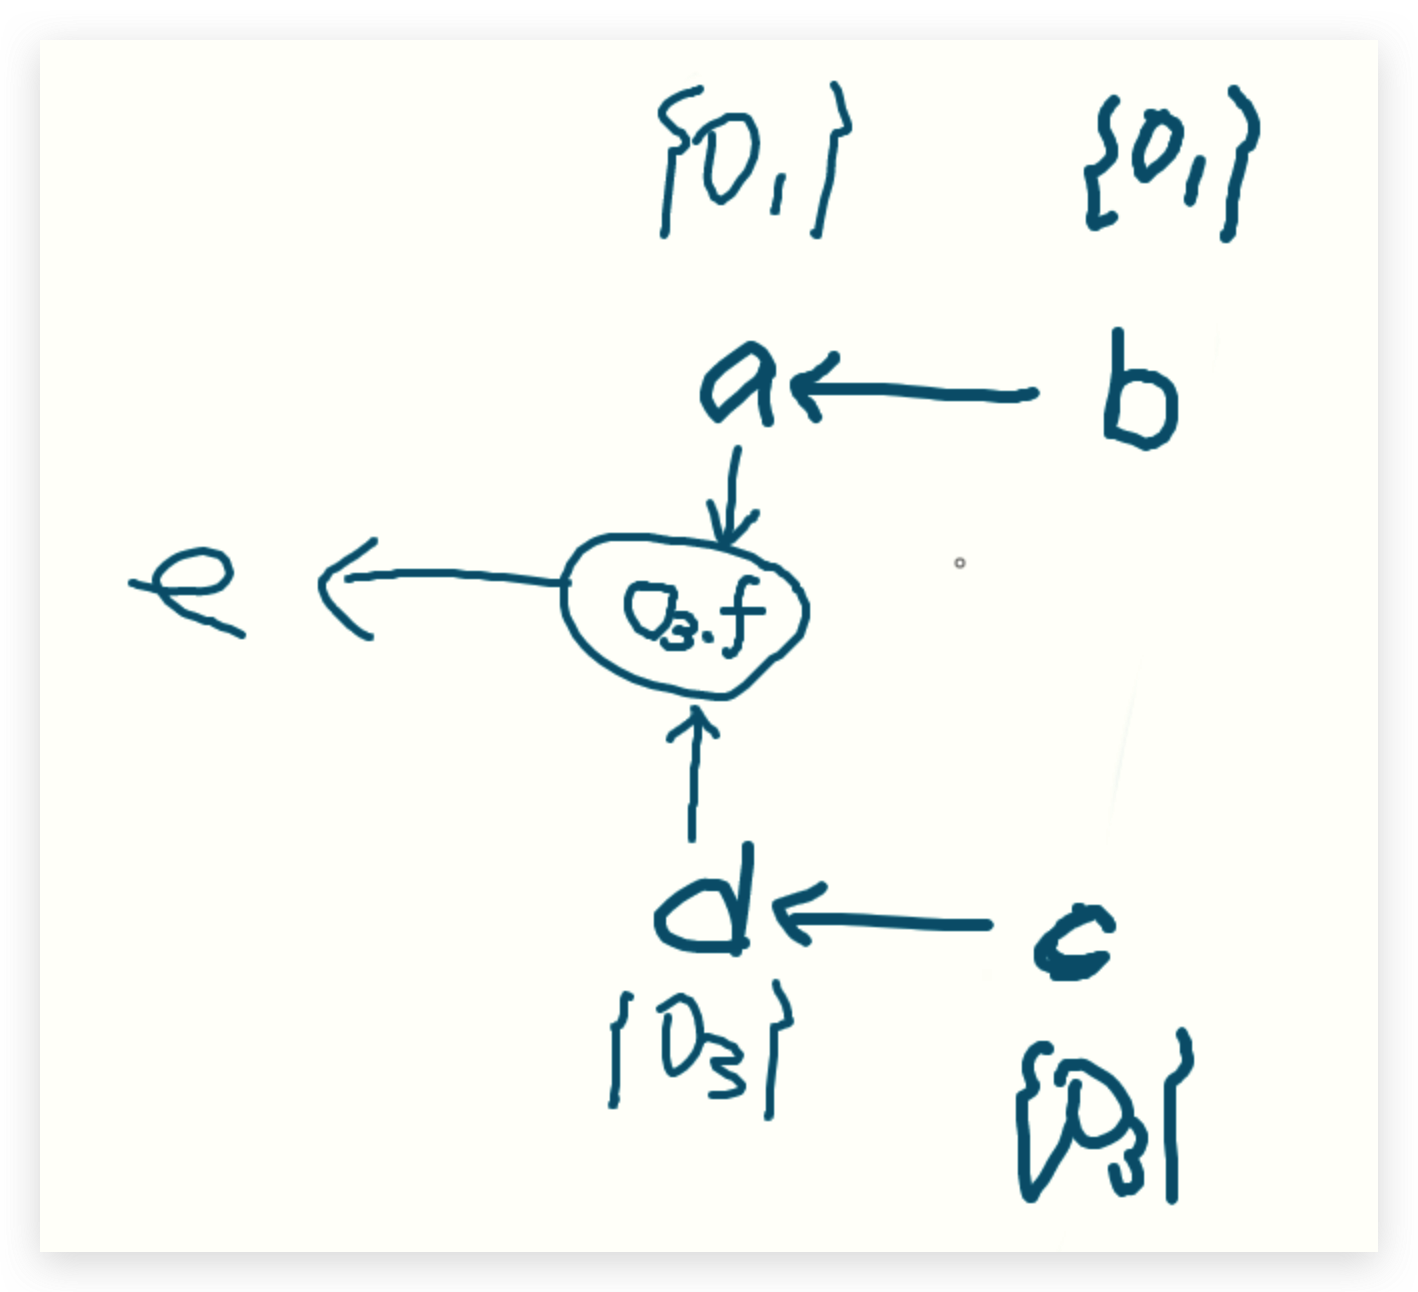 {O₁} {O₁}
a ← b
e ← O₃.f
d ← c
{O₃}
{O₃}